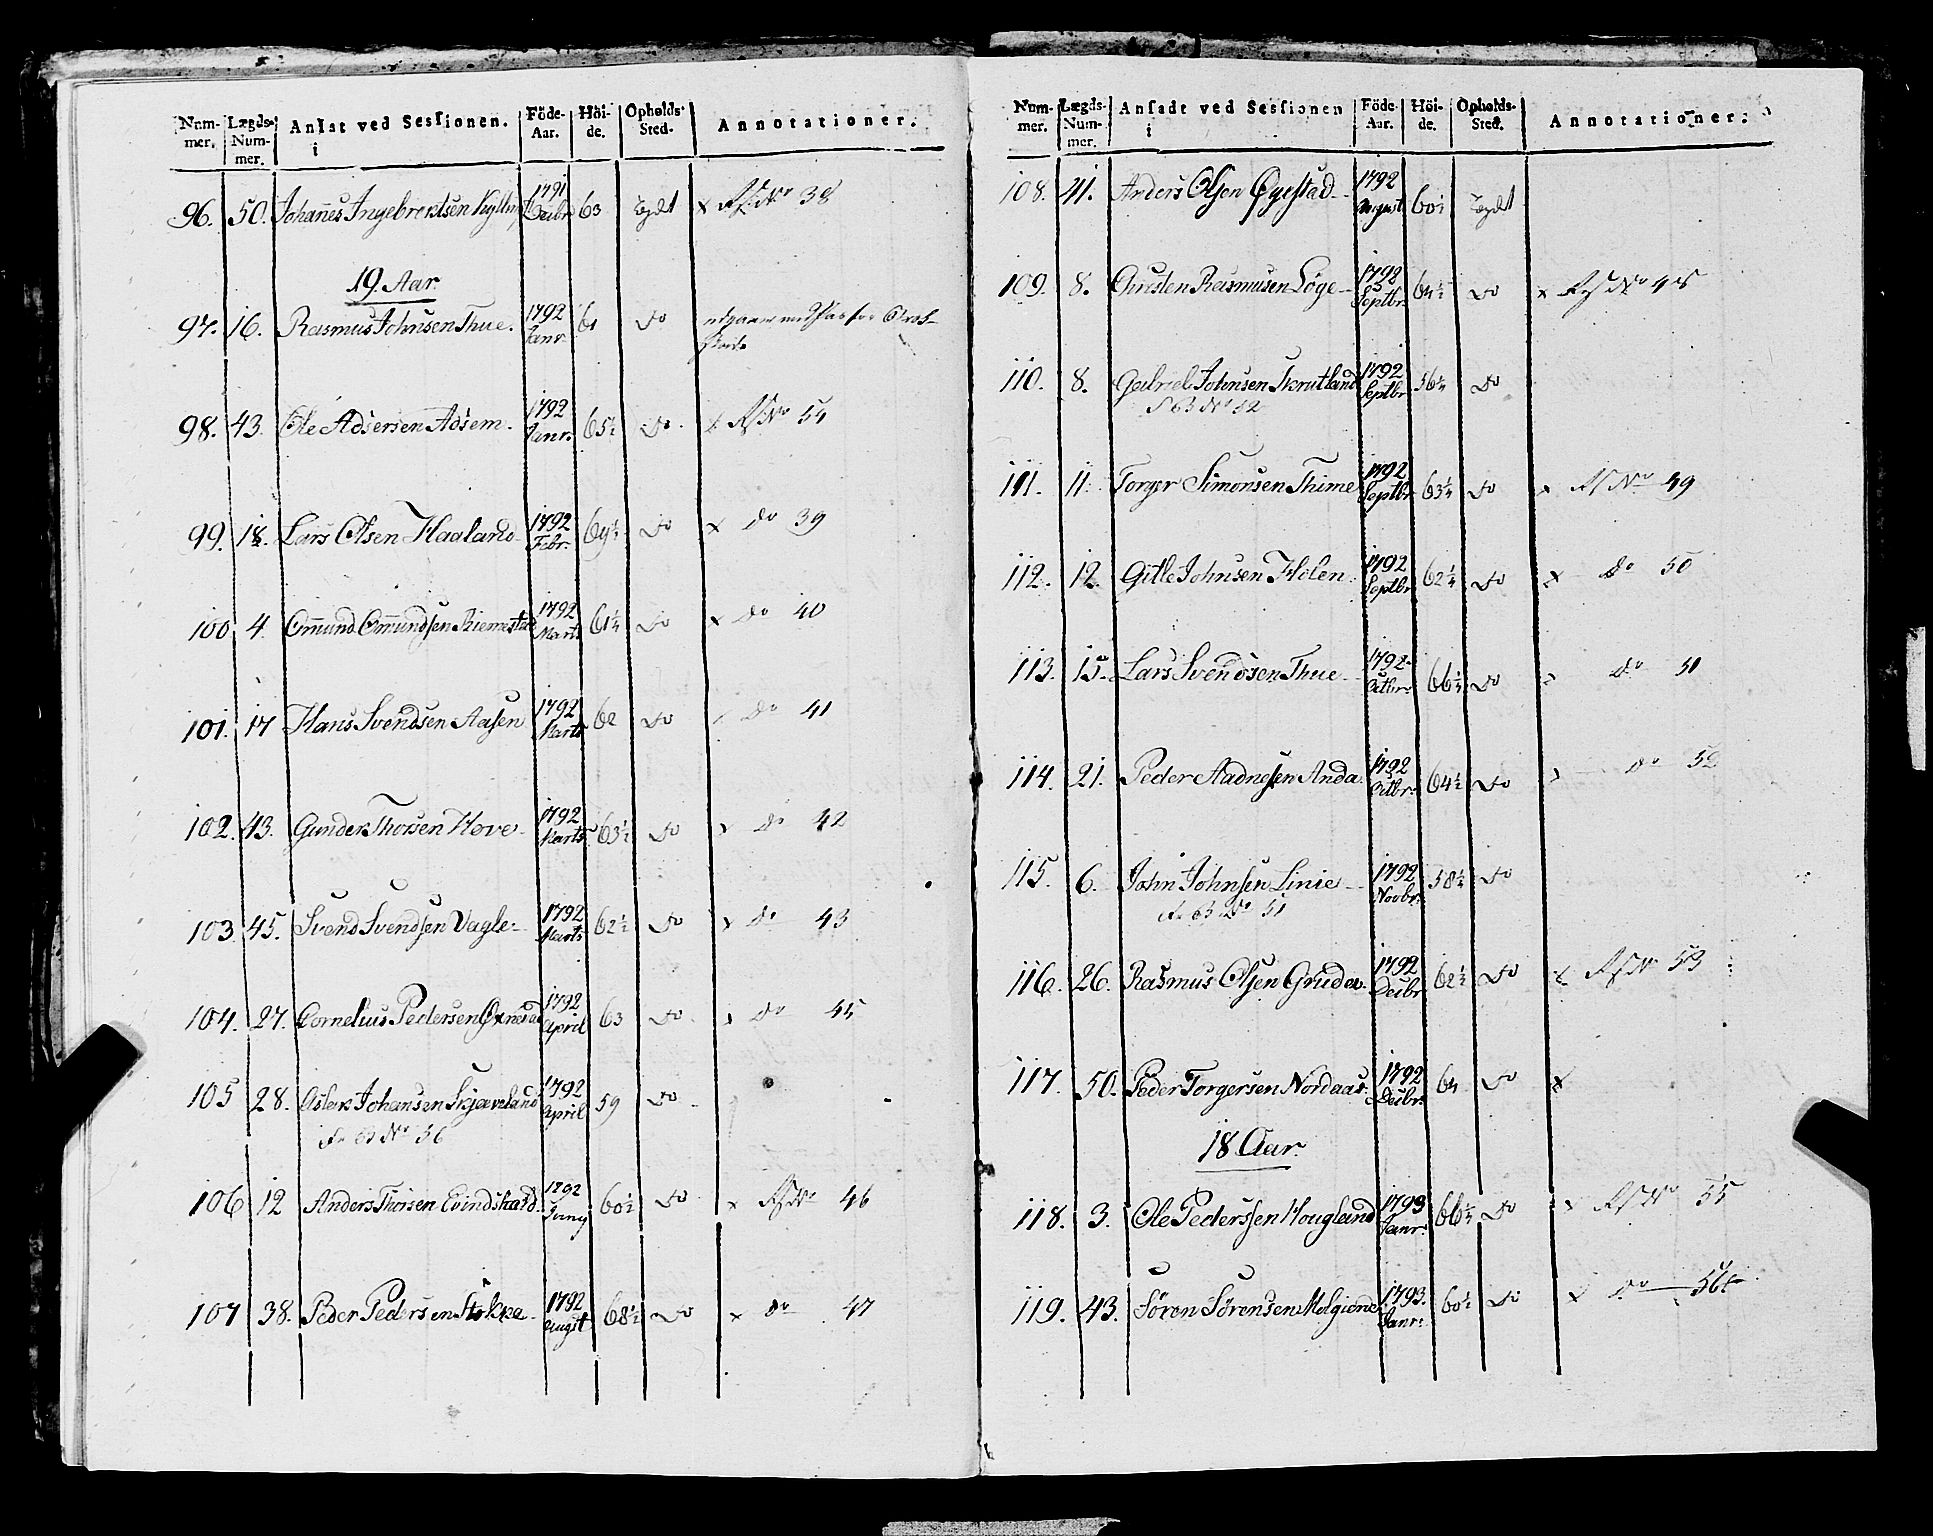 Num- Lægds- Ansat ved Sessionen. Föde- Höi- Opholds-
mer. Num- i Aar. de. Sted. Annotationer.
mer.
96. 50. Johan̄es Ingebrektsen 1791 Decbr 63 Lægdt x No 38
19. Aar.
97. 16. Rasmus Johnsen Thue. 1792 Janr. 61 Do
98. 43. Ole Adsersen Adsem. 1792 Janr. 65½ Do x No 54
99. 18. Lars Olsen Haaland 1792 Febr. 64½ Do x do 39
100 4. Om̄und Om̄undsen 1792 Marts 61¼ Do x do 40
101. 17 Hans Svendsen Aasen 1792 Marts 62 Do do 41
102. 43. Gunder Thorsen Hove 1792 Marts 63½ Do x do 42
103 45. Svend Svendsen Vagle 1792 Marts 62½ Do x do 43
104. 27. Cornelius Pedersen 1792 April 63 Do x do 45
105 28. Aslak Johansen Skjæveland 1792 April 59 Do
No 36
106 12 Anders Thorsen Evindshaard 1792 Juny 60½ Do x No 46
107 38. Peder Pedersen Stokke 1792 Augst 68½ Do x do 47
Num- Lægds- Ansadt ved Sessionen Föde- Höi- Opholds-
mer. Num- i Aar. de. Sted. Annotationer.
mer.
108. 41. Anders Olsen Øgestad 1792 August 60½ Lægdt
109. 8. Christen Rasmusen Løge 1792 Septbr. 64½ Do x No 48
110. 8. Gabriel Johnsen Skrutland 1792 Septbr 56¼ Do
63 No 82
111. 11. Torger Simonsen Thime 1792 Septbr 63¼ Do x No 49
112. 12. Gitle Johnsen Holen 1792 Septbr 62¼ Do x do 50
113. 15. Lars Svendsen Thue 1792 Octbr. 66½ Do do 51
114. 21. Peder Aadnesen Anda 1792 Octbr. 64½ Do do 52
115. 6. John Johnsen Linie 1792 Novbr. 58½ Do
63 No 51
116. 26. Rasmus Olsen Grude 1792 Decbr 62½ Do x No 53
117. 50. Peder Torgersen Nordaas. 1792 Decbr. 64 Do x
18 Aar.
118. 3. Ole Pederssen Hougland 1793 Janr. 66½ Do x No 55
119. 43. Søren Sørensen 1793. Janr. 60½ Do x do 56